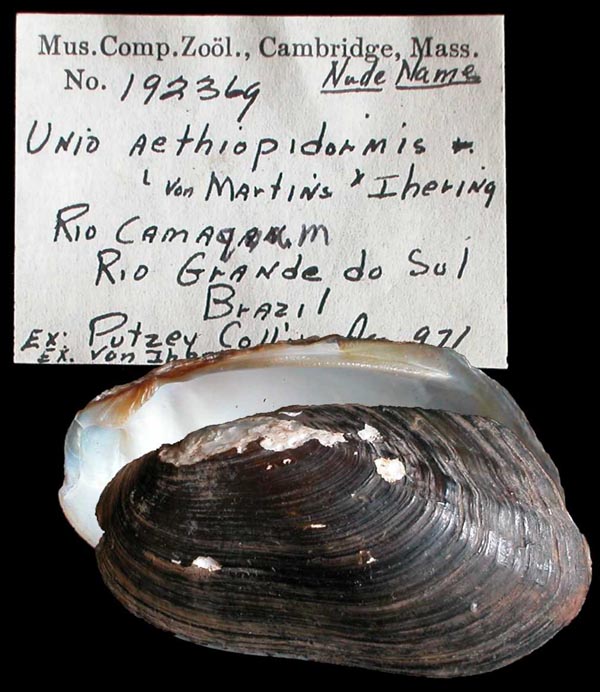 Mus.Comp.Zoöl., Cambridge, Mass.
No. 192369 Nude Name
Unio aethiopidormis
von Martins Ihering
Rio
Rio Grande do Sul
Brazil
Ex: Putzey Coll 971
Ex. von